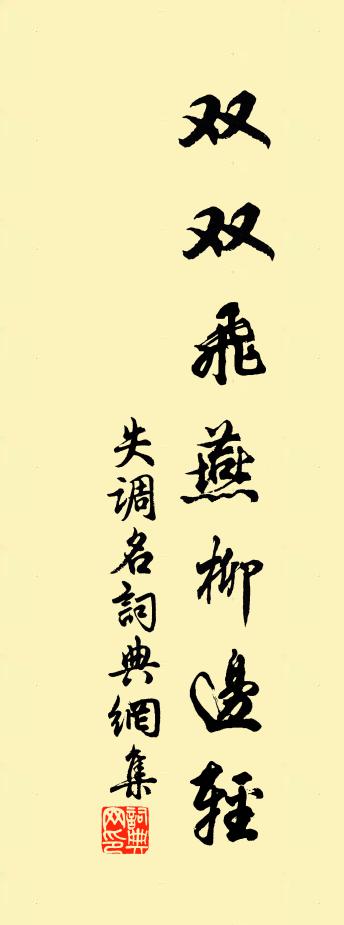 双双飛燕柳邊輕
失调名詞典網集
詞典网印